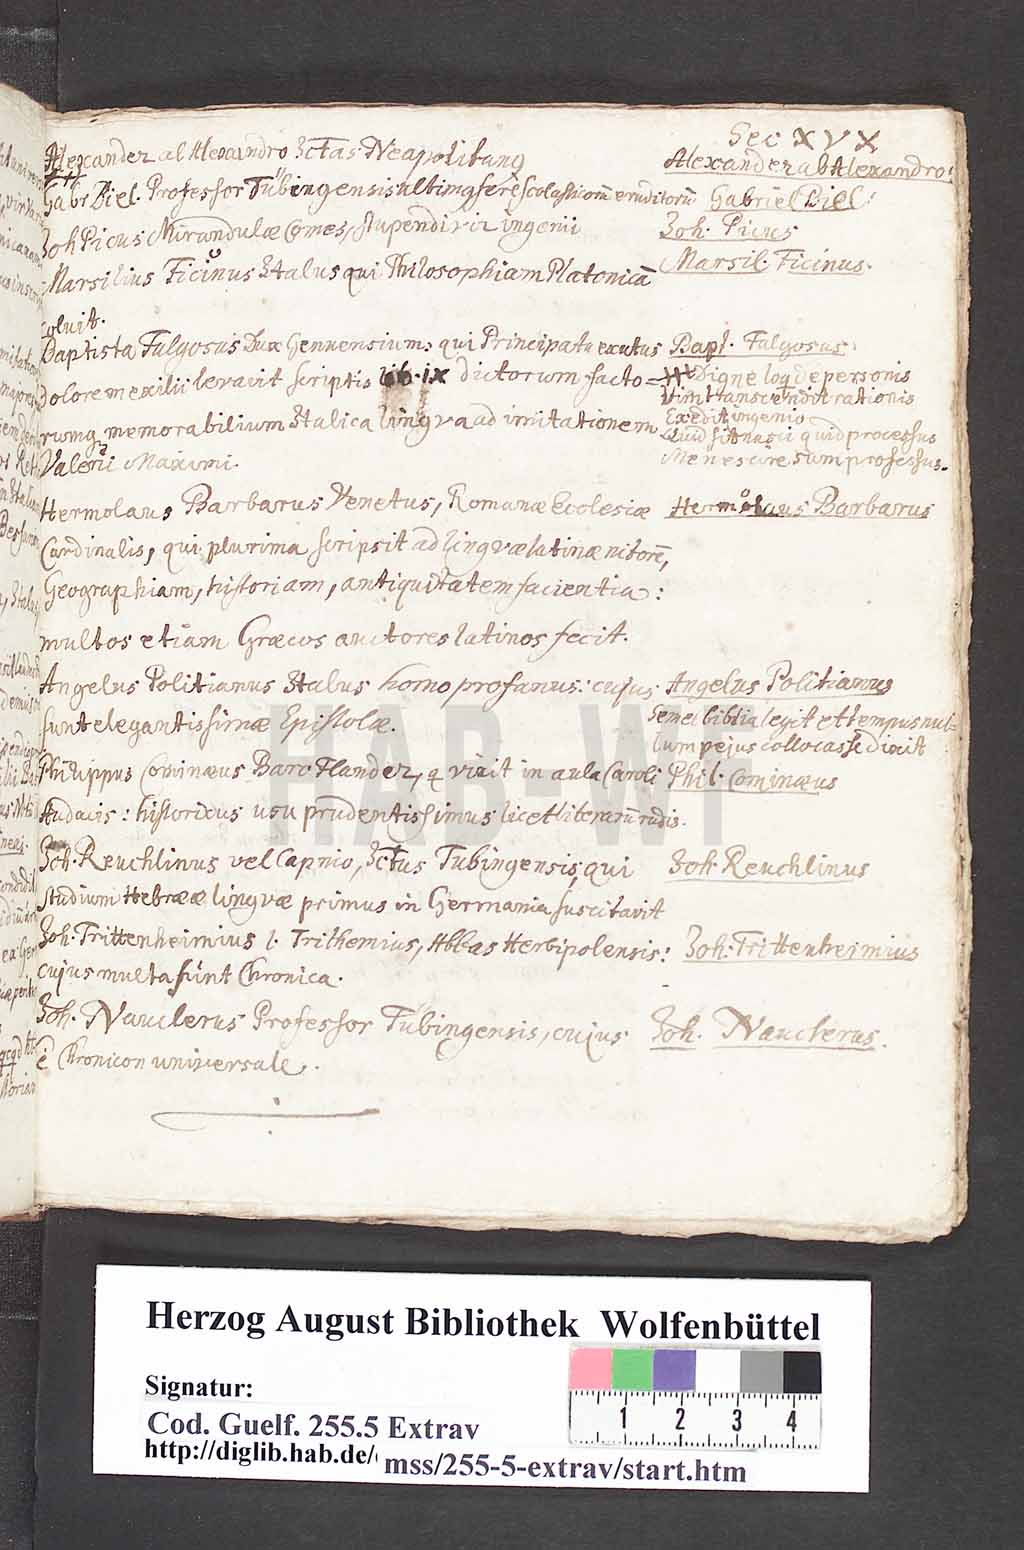 Sec XVX
Alexander al Alexandro Jctas Neapolitanq
Alexander ab Alexandro:
Gabr Biel. Professor Tübengensis ultimq ferè scolastiom̄ eruditorū
Gabriel Biel:
Joh Picus Mirandulæ Comes, stupendi vir ingenii
Joh. Picus
Marsilius Ficinus Italus qui Philosophiam Platonicā
Marsil. Ficinus.
coluit.
Baptista Fulgosus Dux Genuensium: qui Principatu exutus
Bapt. Fulgosus:
Dolorem exilii levavit scriptis lib. ix dictorum facto=
Digne loq de personis
Vim transcendit rationis
rumq memorabilium Italica lingva ad imitationem
Excedit ingenio
Quid sit nasci quid processus
Valerii Maximi.
Me nescire sum professus.
Hermolaus Barbarus Venetus, Romanæ Ecclesiæ
Hermolaus Barbarus
Cardinalis, qui plurima scripsit ad lingvæ latinæ nitorē,
Geographiam, historiam, antiquitatem facientia:
multos etiam Græcos auctores latinos fecit.
Angelus Politianus Italus homo profanus: cujus
Angelus Politianus
sunt elegantissimæ Epistolæ.
Semel biblia legit et tempus nul=
lum pejus collocasse dixit
Philippus Cominæus Baro Flander, q vixit in aula Caroli
Phil. Cominæus
Audacis: historicus usu prudentissimus licet literarū rudis.
Joh. Reuchlinus vel Capnio, Jctus Tubingensis, qui
Joh. Reuchlinus
studium Hebrææ lingvæ primus in Germania suscitavit
Joh. Trittenheimius l. Trithemius, Abbas Herbipolensis:
Joh. Trittenheimius
cujus multa sunt Chronica.
Joh. Nauclerus Professor Tübingensis, cujus
Joh. Nauclerus.
ē Chronicon universale.
HAB-WF
Herzog August Bibliothek Wolfenbüttel
Signatur:
Cod. Guelf. 255.5 Extrav
http://diglib.hab.de/
mss/255-5-extrav/start.htm
1 2 3 4